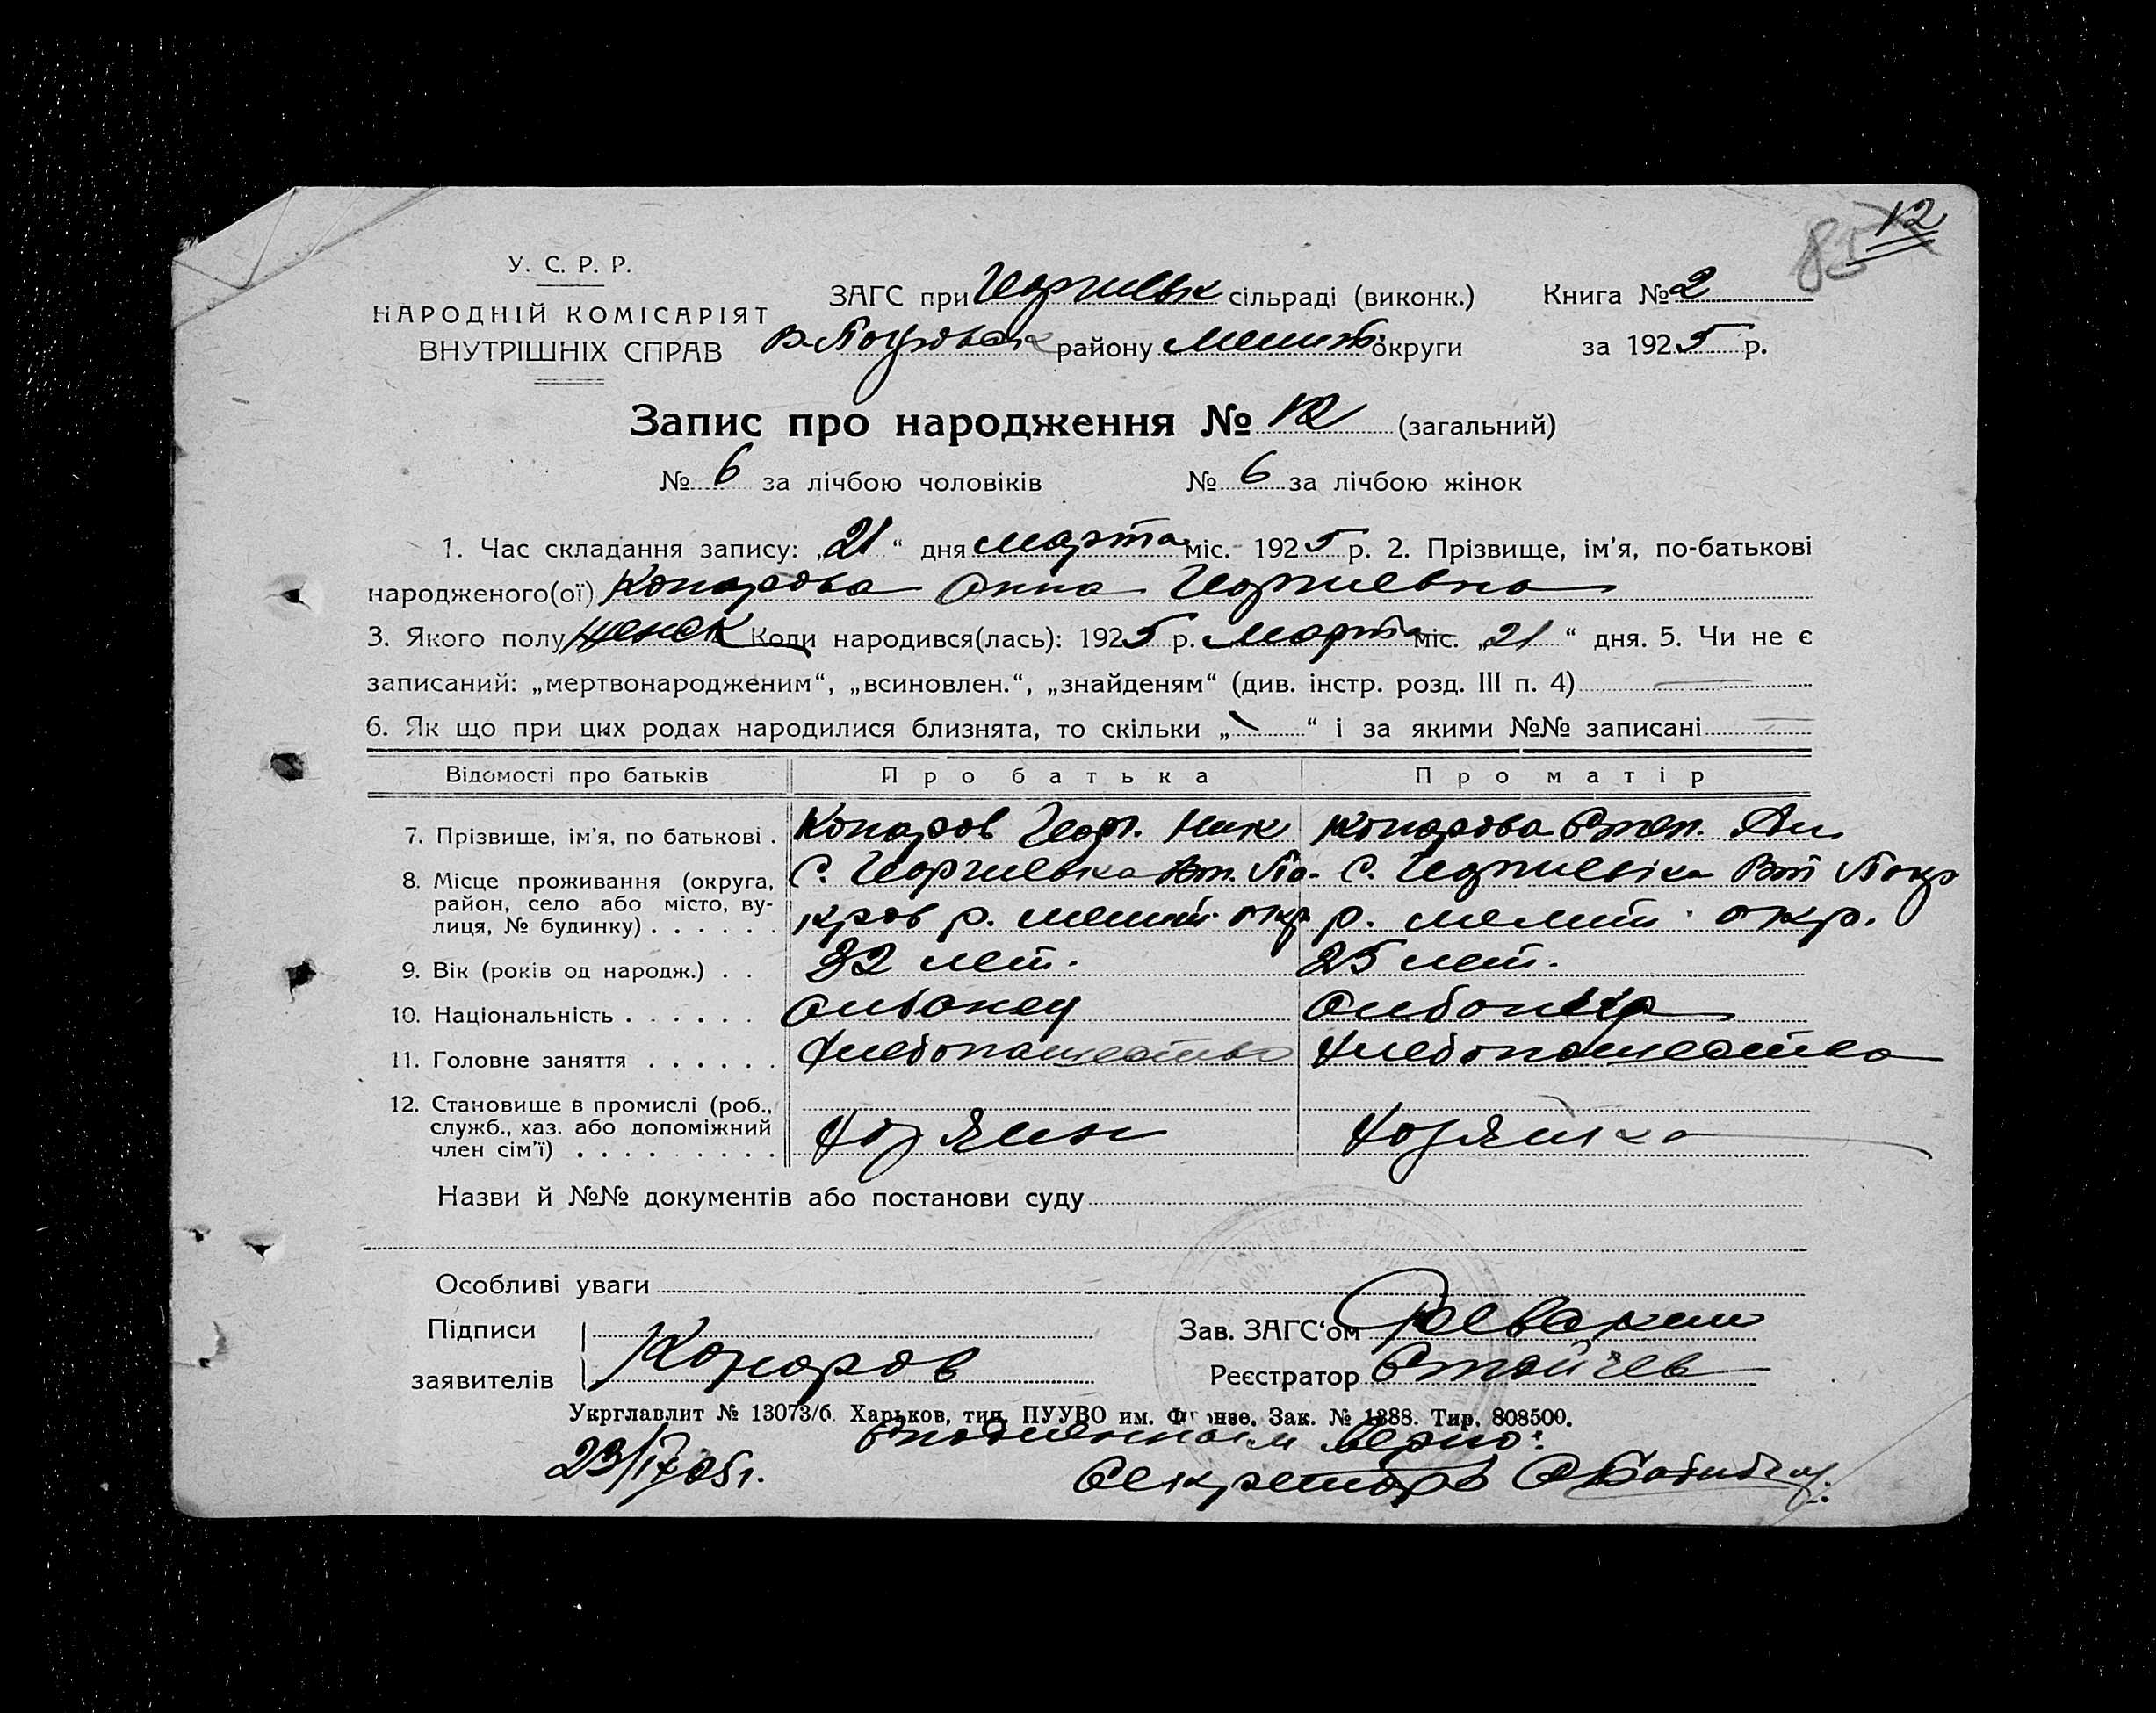 12
85
У. С. Р. Р.
НАРОДНІЙ КОМІСАРІЯТ
ВНУТРІШНІХ СПРАВ
ЗАГС при Георгиевск сільраді (виконк.) Книга № 2
В-Покровск району Мелит. округи за 1925 р.
Запис про народження № 12 (загальний)
№ 6 за лічбою чоловіків № 6 за лічбою жінок
1. Час складання запису: „21“ дня марта міс. 1925 р. 2. Прізвище, ім'я, по-батькові
народженого(ої) Конарова Анна Георгиевна
3. Якого полу женск Коли народився(лась): 1925 р. Марта міс. „21“ дня. 5. Чи не є
записаний: „мертвонародженим“, „всиновлен.“, „знайденям“ (див. інстр. розд. III п. 4)
6. Як що при цих родах народилися близнята, то скільки „ “ і за якими №№ записані
Відомості про батьків Про батька Про матір
7. Прізвище, ім'я, по батькові . Конаров Георг. Ник Конарова Степ. Ан.
8. Місце проживання (округа, район, село або місто, вулиця, № будинку) . . . . . . С. Георгиевка Вт. По- С. Георгиевка Вт Покр
кров р. мелит. окр р. мелит. окр.
9. Вік (років од народж.) . . 32 лет. 25 лет.
10. Національність . . . . . . албанец албанка
11. Головне заняття . . . . . . хлебопашество хлебопашество
12. Становище в промислі (роб., служб., хаз. або допоміжний член сім'ї) . . . . . . . . . Хозяин Хозяйка
Назви й №№ документів або постанови суду
Особливі уваги
Підписи
заявителів Конаров
Зав. ЗАГС‘ом
Реєстратор Стойчев
Укрглавлит № 13073/б. Харьков, тип. ПУУВО им. Фрунзе. Зак. № 1388. Тир. 808500.
С подлинным верно:
Секретарь